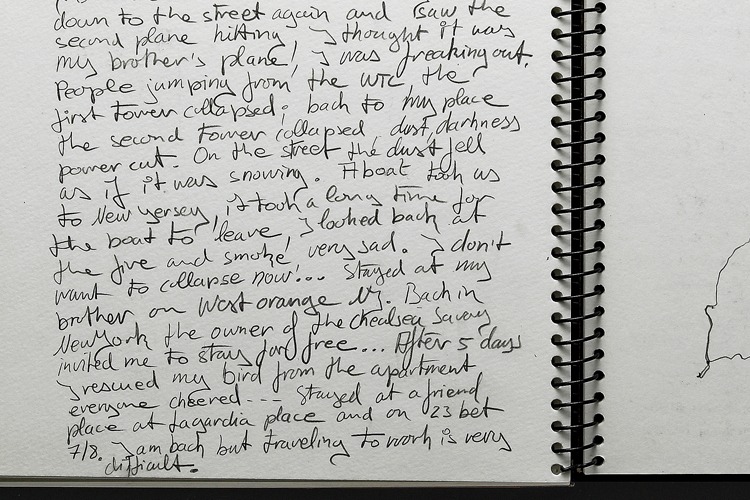 down to the street again and I saw the
second plane hitting I thought it was
my brother's plane! I was freaking out.
People jumping from the WTC the
first tower collapsed; back to my place
the second tower collapsed, dust, darkness
power cut. On the street the dust fell
as if it was snowing. A boat took us
to New Yersey, it took a long time for
the boat to leave, I looked back at
the fire and smoke, very sad. I don't
want to collapse now!... Stayed at my
brother on West orange NJ. Back in
New York the owner of the Chealsea Savoy
invited me to stay for free... After 5 days
I rescued my bird from the apartment
everyone cheered --- Stayed at a friend
place at Lagardia place and on 23 bet
7/8. I am back but traveling to work is very
difficult.